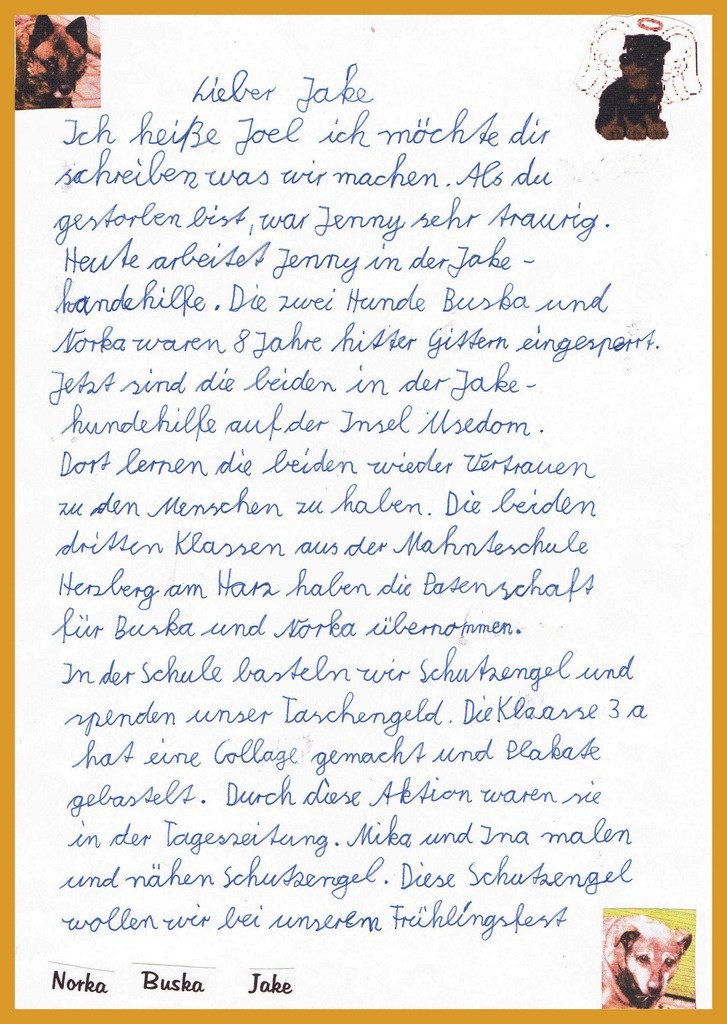 Lieber Jake
Ich heiße Joel ich möchte dir
schreiben was wir machen. Als du
gestorben bist, war Jenny sehr traurig.
Heute arbeitet Jenny in der Jake-
hundehilfe. Die zwei Hunde Buska und
Norka waren 8 Jahre hitter Gittern eingesperrt.
Jetzt sind die beiden in der Jake-
hundehilfe auf der Insel Usedom.
Dort lernen die beiden wieder Vertrauen
zu den Menschen zu haben. Die beiden
dritten Klassen aus der Mahnteschule
Herzberg am Harz haben die Patenschaft
für Buska und Norka übernommen.
In der Schule basteln wir Schutzengel und
spenden unser Taschengeld. Die Klaasse 3 a
hat eine Collage gemacht und Plakate
gebastelt. Durch diese Aktion waren sie
in der Tageszeitung. Mika und Ina malen
und nähen Schutzengel. Diese Schutzengel
wollen wir bei unserem Frühlingsfest
Norka Buska Jake